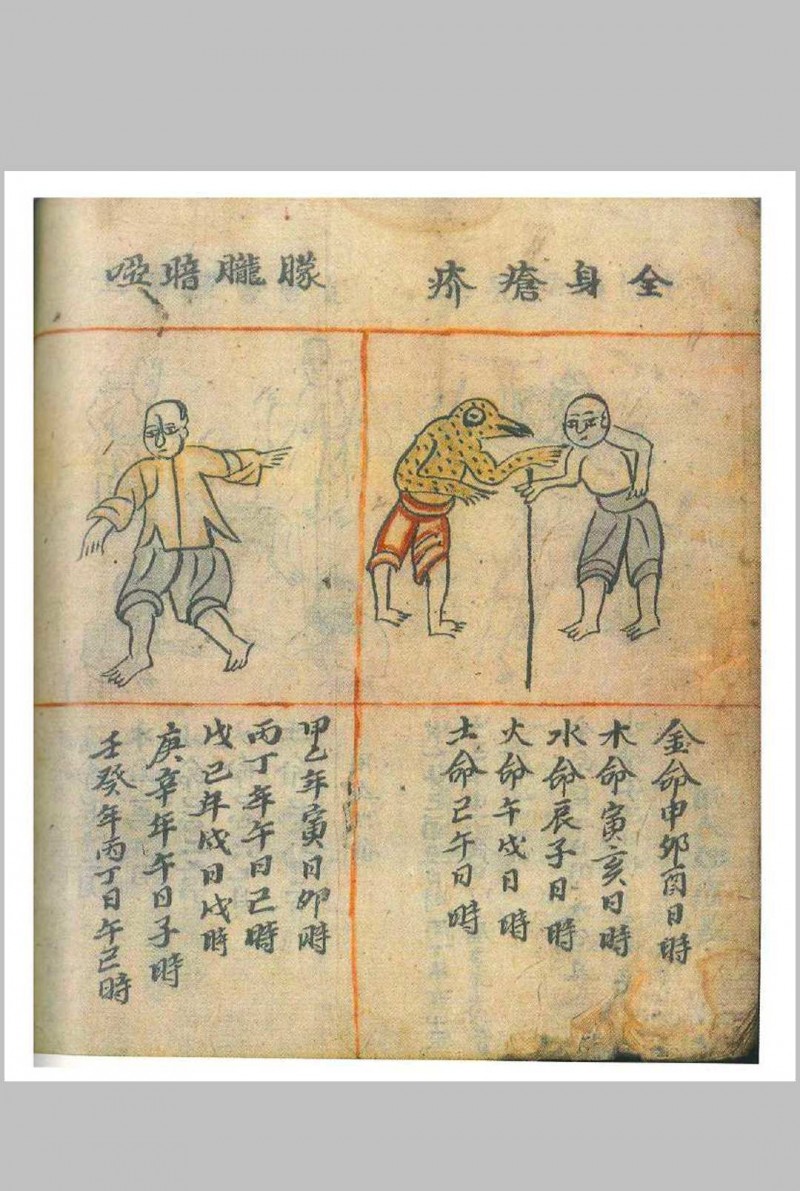 全身瘡疥
金命申卯酉日時
木命寅亥日時
水命辰子日時
火命午戌日時
土命巳午日時
朦朧暗啞
甲乙年寅日卯時
丙丁年午日巳時
戊己年戌日戌時
庚辛年午日子時
壬癸年丙丁日午巳時